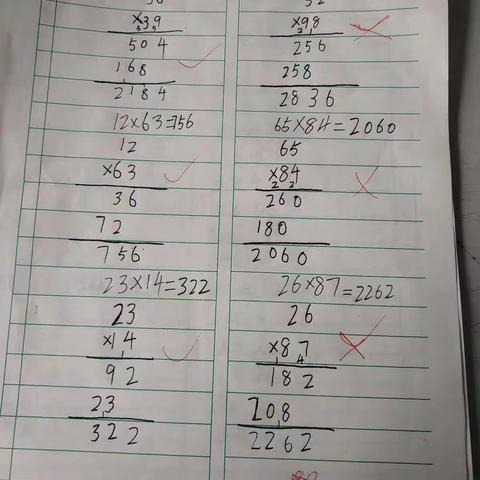 ×39
504
168
2184
12×63=756
12
×63
36
72
756
23×14=322
23
×14
92
23
322
×98
256
258
2836
65×84=2060
65
×84
260
180
2060
26×87=2262
26
×87
182
208
2262